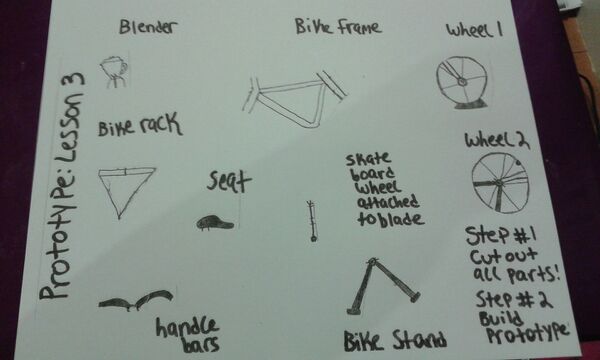 Prototype: Lesson 3
Blender
Bike Frame
Wheel 1
Bike rack
Seat
skate
board
wheel
attached
to blade
Wheel 2
handle
bars
Bike Stand
Step #1
Cut out
all parts!
Step #2
Build
Prototype